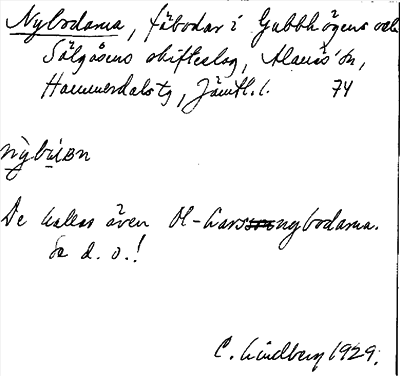 Nybodarna, fäbodar i Gubbhögens och
Sälgåsens skifteslag, Alanäs sn,
Hammerdals tg, Jämtl. l. 74
nỳbùᴀʙn
De kallas även Ol-Larssonnybodarna.
Se d. o.!
C. Lindberg 1929.